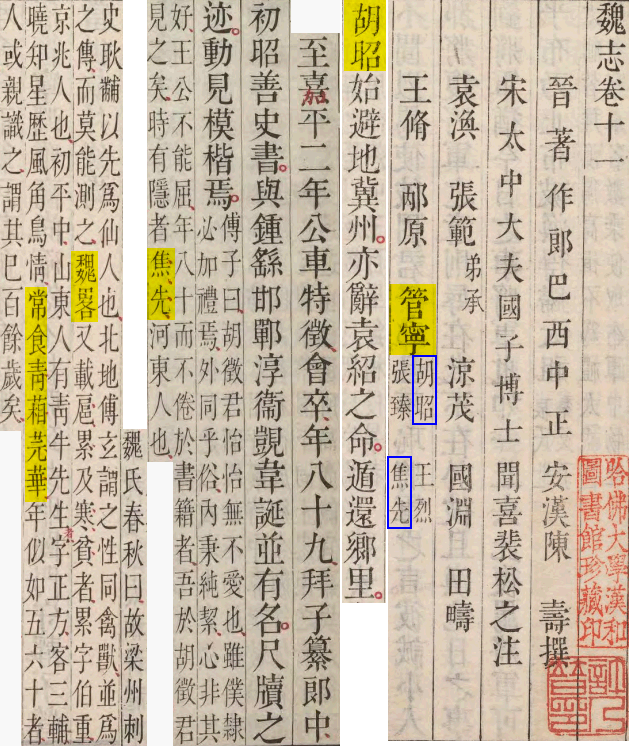 魏志卷十一
晉著作郎巴西中正安漢陳壽撰
宋太中大夫國子博士聞喜裴松之注
袁渙 張範弟承 涼茂 國淵 田疇
王脩 邴原 管寧 胡昭 王烈
張臻 焦先
哈佛大學漢和
圖書館珍藏印
胡昭始避地冀州亦辭袁紹之命遁還鄉里
至嘉平二年公車特徵會卒年八十九拜子纂郎中
初昭善史書與鍾繇邯鄲淳衞覬韋誕並有名尺牘之
迹動見模楷焉
傅子曰胡徵君怡怡無不愛也雖僕隸
必加禮焉外同乎俗內秉純絜心非其
好王公不能屈年八十而不倦於書籍者吾於胡徵君
見之矣時有隱者焦先河東人也
魏氏春秋曰故梁州刺
史耿黼以先爲仙人也北地傅玄謂之性同禽獸並爲
之傳而莫能測之魏畧又載扈累及寒貧者累字伯重
京兆人也初平中山東人有青牛先生字正方客三輔
曉知星歷風角鳥情常食青葙芫華年似如五六十者
人或親識之謂其已百餘歲矣